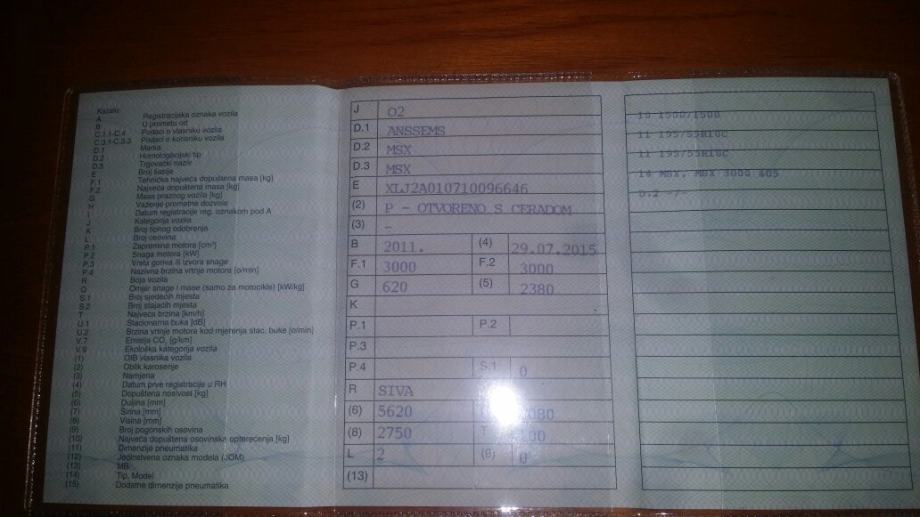 Kazalo:
A Registracijska oznaka vozila
B U prometu od
C.1.1-C.4 Podaci o vlasniku vozila
C.3.1-C.3.3 Podaci o korisniku vozila
D.1 Marka
D.2 Homologacijski tip
D.3 Trgovački naziv
E Broj šasije
F.1 Tehnička najveća dopuštena masa [kg]
F.2 Najveća dopuštena masa [kg]
G Masa praznog vozila [kg]
H Važenje prometne dozvole
I Datum registracije reg. oznakom pod A
J Kategorija vozila
K Broj tipnog odobrenja
L Broj osovina
P.1 Zapremina motora [cm³]
P.2 Snaga motora [kW]
P.3 Vrsta goriva ili izvora snage
P.4 Nazivna brzina vrtnje motora [o/min]
R Boja vozila
Q Omjer snage i mase (samo za motocikle) [kW/kg]
S.1 Broj sjedećih mjesta
S.2 Broj stajaćih mjesta
T Najveća brzina [km/h]
U.1 Stacionarna buka [dB]
U.2 Brzina vrtnje motora kod mjerenja stac. buke [o/min]
V.7 Emisija CO₂ [g/km]
V.9 Ekološka kategorija vozila
(1) OIB vlasnika vozila
(2) Oblik karoserije
(3) Namjena
(4) Datum prve registracije u RH
(5) Dopuštena nosivost [kg]
(6) Duljina [mm]
(7) Širina [mm]
(8) Visina [mm]
(9) Broj pogonskih osovina
(10) Najveća dopuštena osovinska opterećenja [kg]
(11) Dimenzije pneumatika
(12) Jedinstvena oznaka modela (JOM)
(13) MB
(14) Tip, Model
(15) Dodatne dimenzije pneumatika
J O2
D.1 ANSSEMS
D.2 MSX
D.3 MSX
E XLJ2A010710096646
(2) P - OTVORENO S CERADOM
(3) -
B 2011. (4) 29.07.2015
F.1 3000 F.2 3000
G 620 (5) 2380
K
P.1 P.2
P.3
P.4 S.1 0
R SIVA
(6) 5620
(8) 2750 T 100
L 2 (9) 0
(13)
10 1500/1500
11 195/55R10C
11 195/55R10C
14 MSX, MSX 3000 405
D.2 -/-